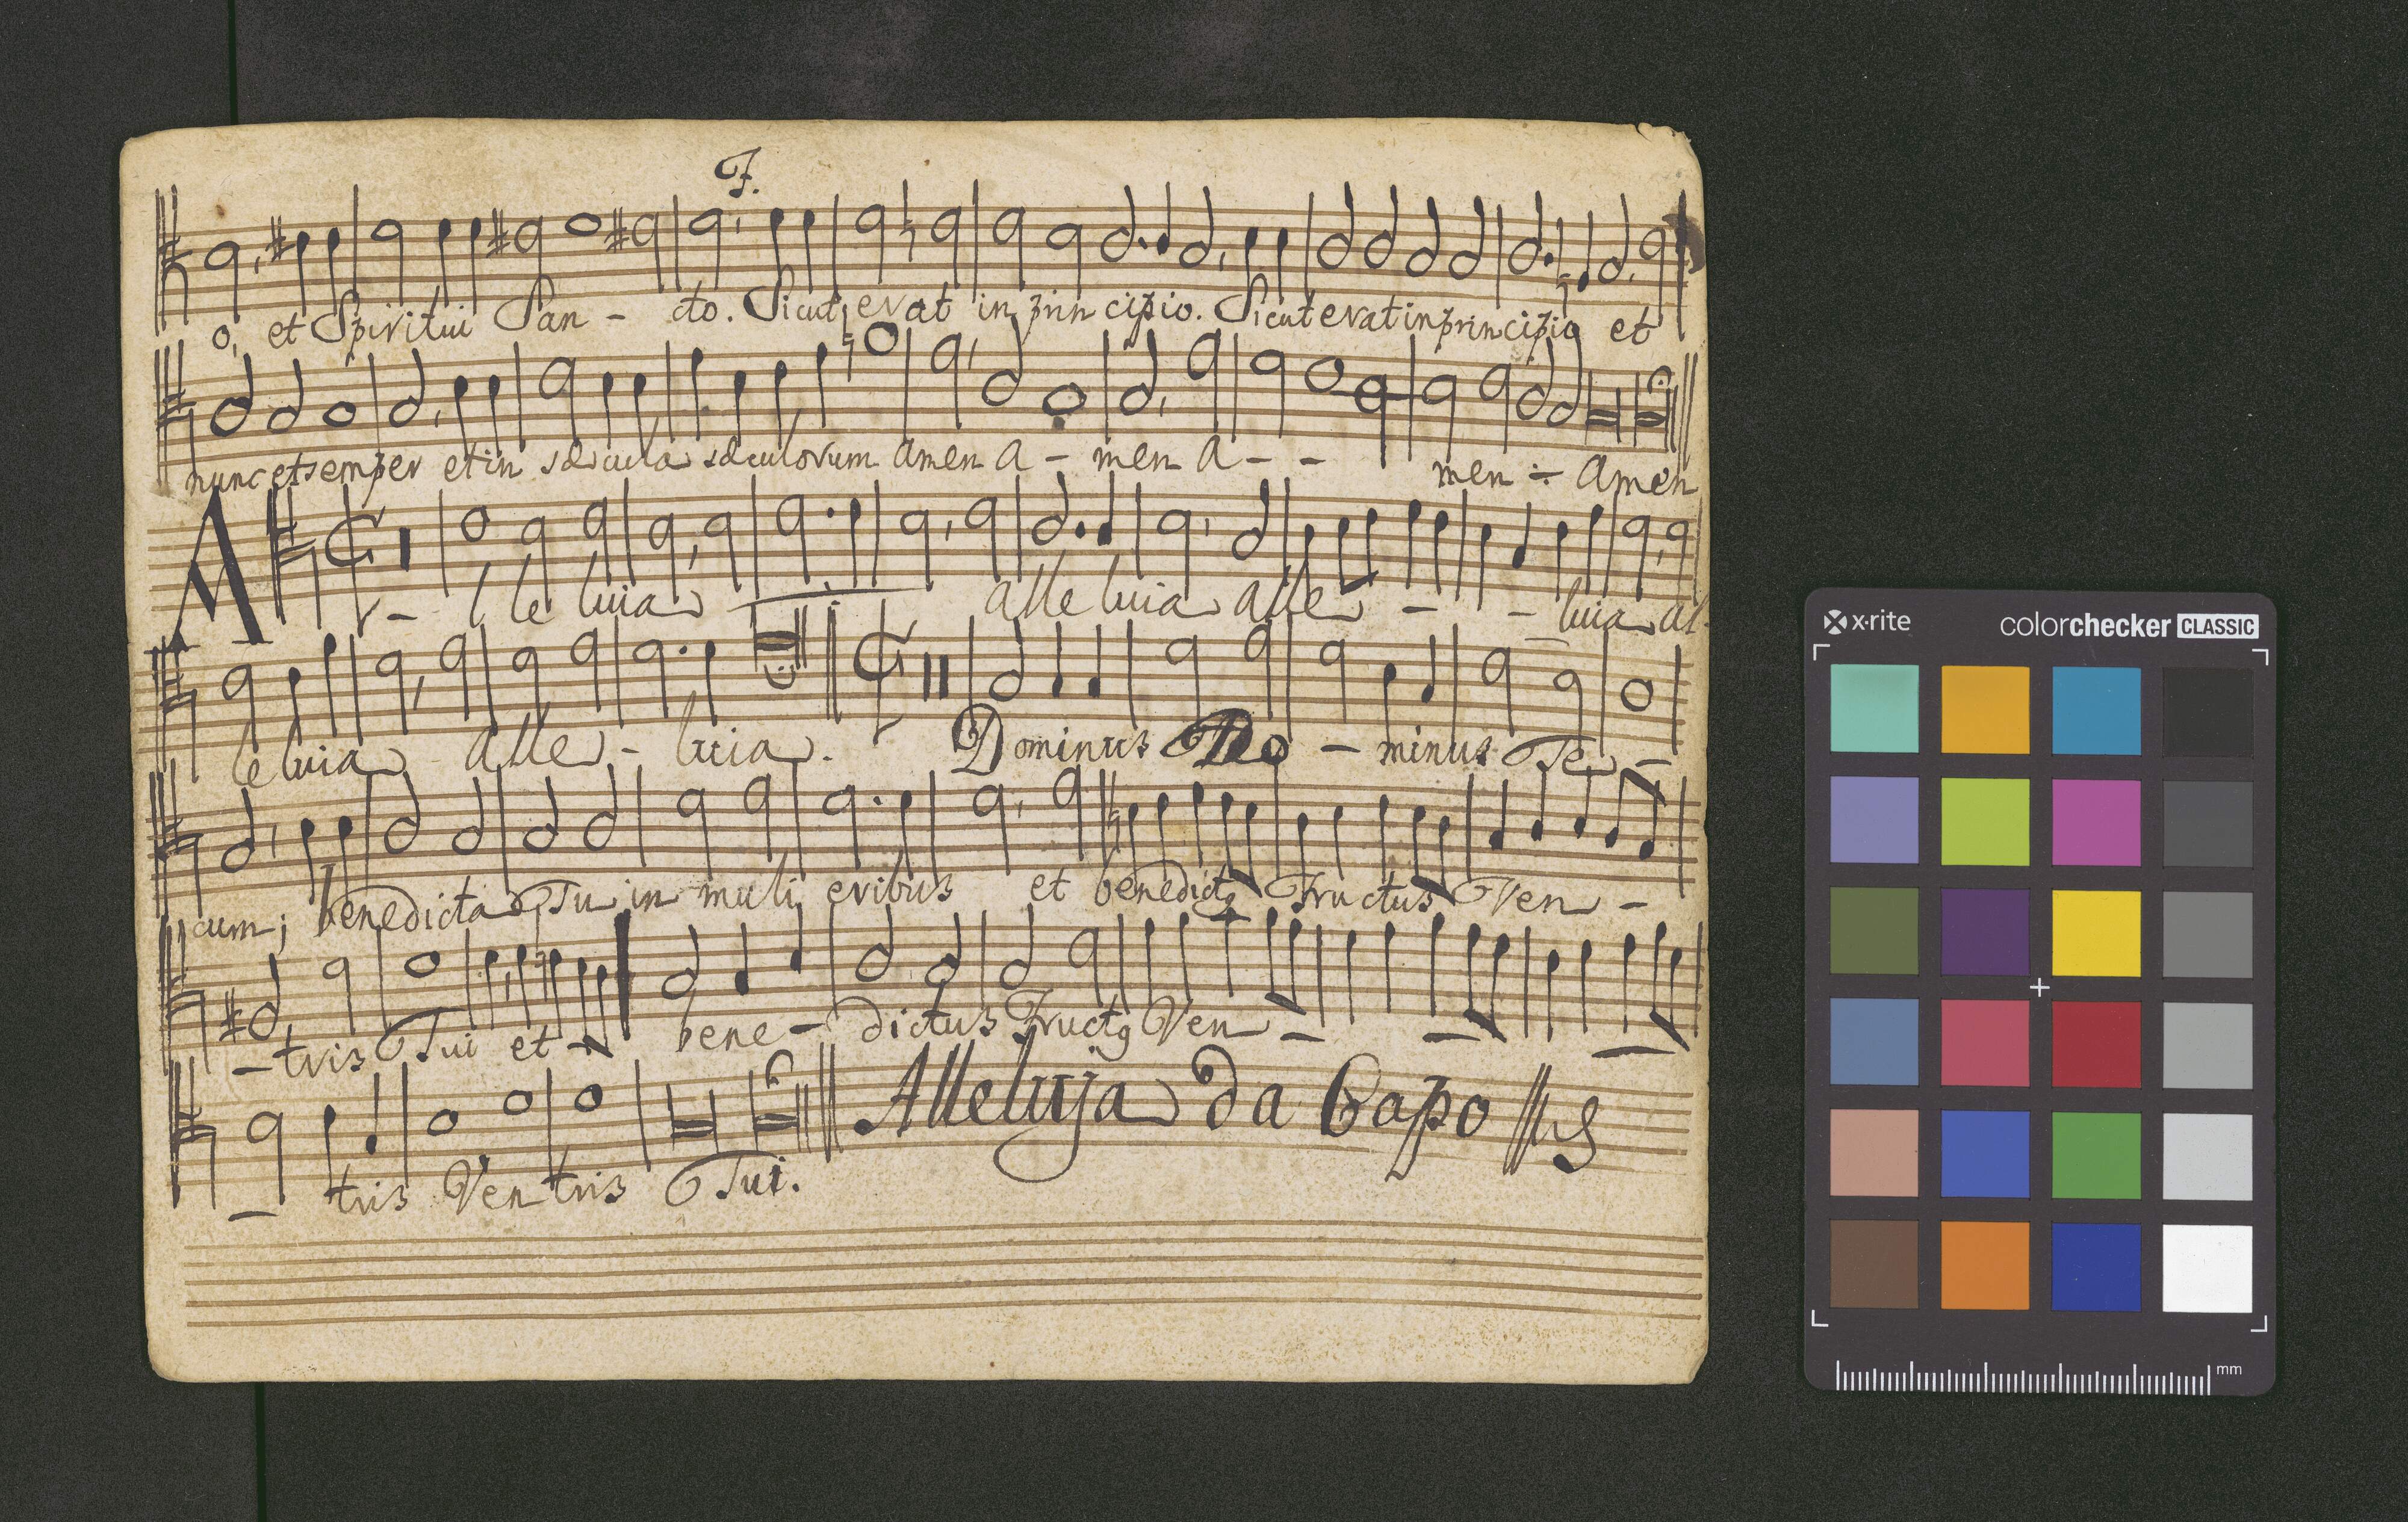 F.
o, et Spiritui San - cto. Sicut erat in principio. Sicut erat in principio et
nunc et semper et in sæcula sæculorum amen a - men a - - men ÷ amen
A - lleluia alleluia alle - - luia al-
leluia alle - luia. Dominus Do - minus Te -
cum; benedicta Tu in mulieribus et benedictg Fructus Ven -
- tris Tui et - bene - dictus Fructg Ven - - -
- tris Ventris Tui. Alleluja Da Capo
x-rite colorchecker CLASSIC
mm